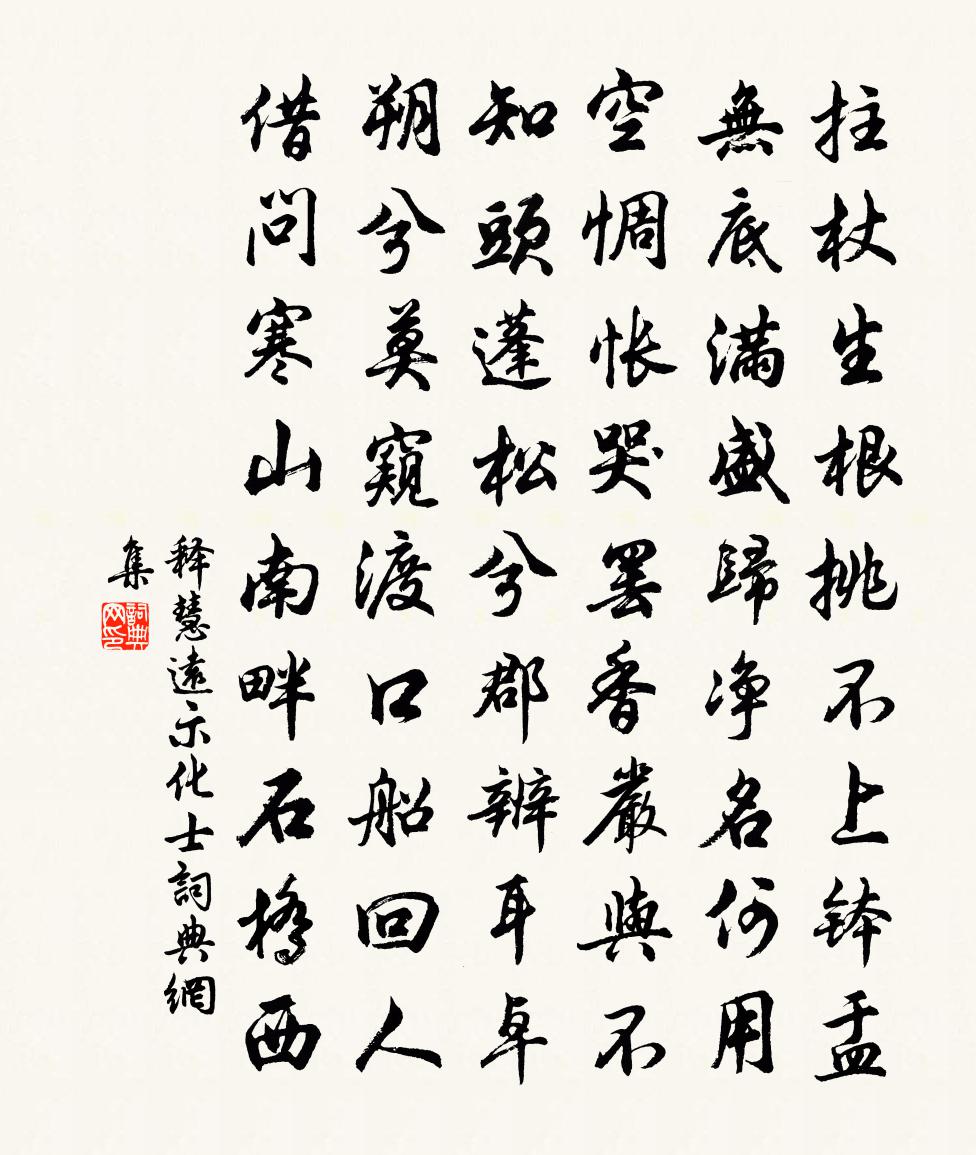 拄杖生根挑不上鉢盂
無底滿盛歸淨名何用
空惆悵哭罢香嚴與不
知頭蓬松兮郡辦耳卓
朔兮莫窺渡口船回人
借問寒山南畔石橋西
释慧遠示化士詞典網
集
詞典网印